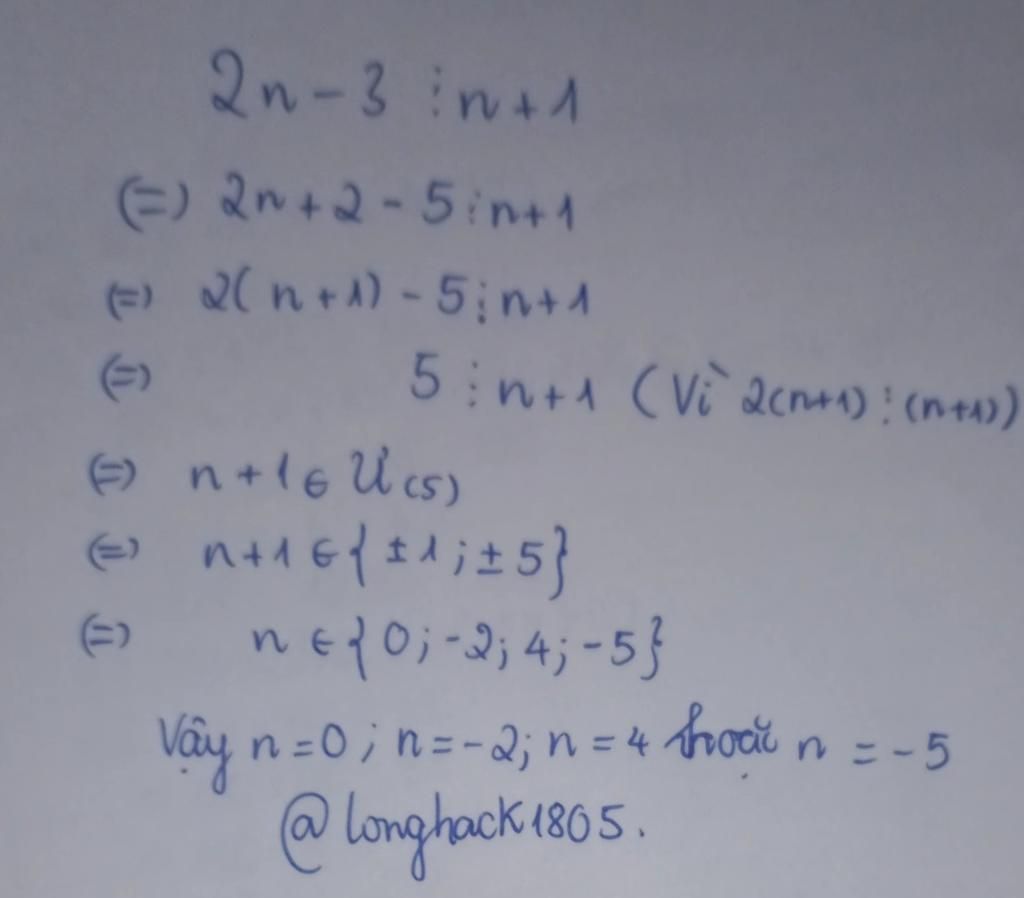 2n - 3 ⋮ n + 1
(=) 2n + 2 - 5 ⋮ n + 1
(=) 2( n + 1) - 5 ⋮ n + 1
(=) 5 ⋮ n + 1 ( Vì 2(n+1) ⋮ (n+1))
(=) n + 1 ∈ Ư(5)
(=) n + 1 ∈ { ± 1 ; ± 5}
(=) n ∈ { 0; -2; 4; -5}
Vậy n = 0 ; n = -2; n = 4 hoặc n = -5
@longhack1805.